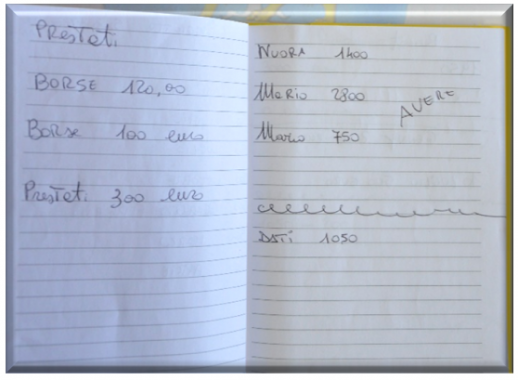 Prestati
BORSE 120,00
Borse 100 euro
Prestati 300 euro
NUORA 1400
Mario 2800
AVERE
Mario 750
DATi 1050